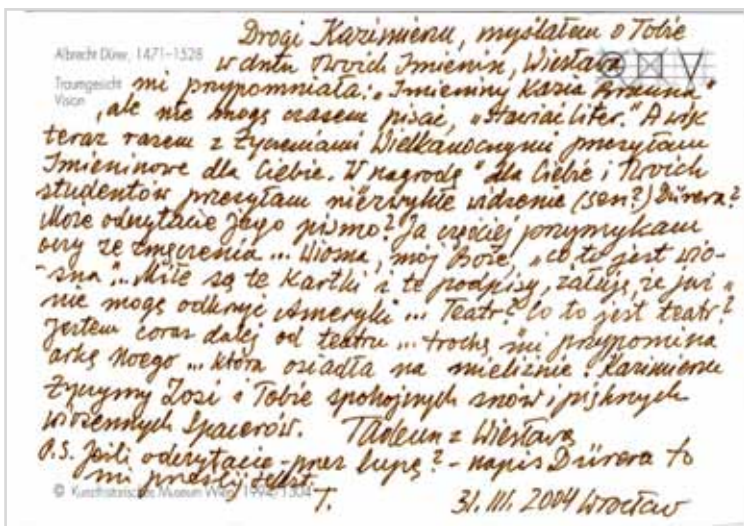 Drogi Kazimierzu, myślałem o Tobie
Albrecht Dürer, 1471–1528
w dniu Twoich Imienin, Wiesława
Traumgesicht
Vision
mi przypomniała: „Imieniny Kazia Brauna"
, ale nie mogę czasem pisać, „stawiać liter." A więc
teraz razem z życzeniami Wielkanocnymi przesyłam
Imieninowe dla Ciebie. „W nagrodę" dla Ciebie i Twoich
studentów przesyłam niezwykłe widzenie (sen?) Dürera?
Może odczytacie Jego pismo? Ja częściej przymykam
oczy ze zmęczenia ... Wiosna, mój Boże, „co to jest wio-
sna"... Miłe są te kartki i te podpisy, żałuję, że już
nie mogę odkryć Ameryki ... Teatr? Co to jest teatr?
Jestem coraz dalej od teatru ... trochę mi przypomina
arkę Noego ... która osiadła na mieliźnie. Kazimierzu
życzymy Zosi i Tobie spokojnych snów i pięknych
wiosennych spacerów. Tadeusz z Wiesławą
P.S. Jeśli odczytacie - przez lupę? - napis Dürera to
mi prześlij tekst.
© Kunsthistorisches Museum Wien, 1994/1504
T. 31. III. 2004 Wrocław